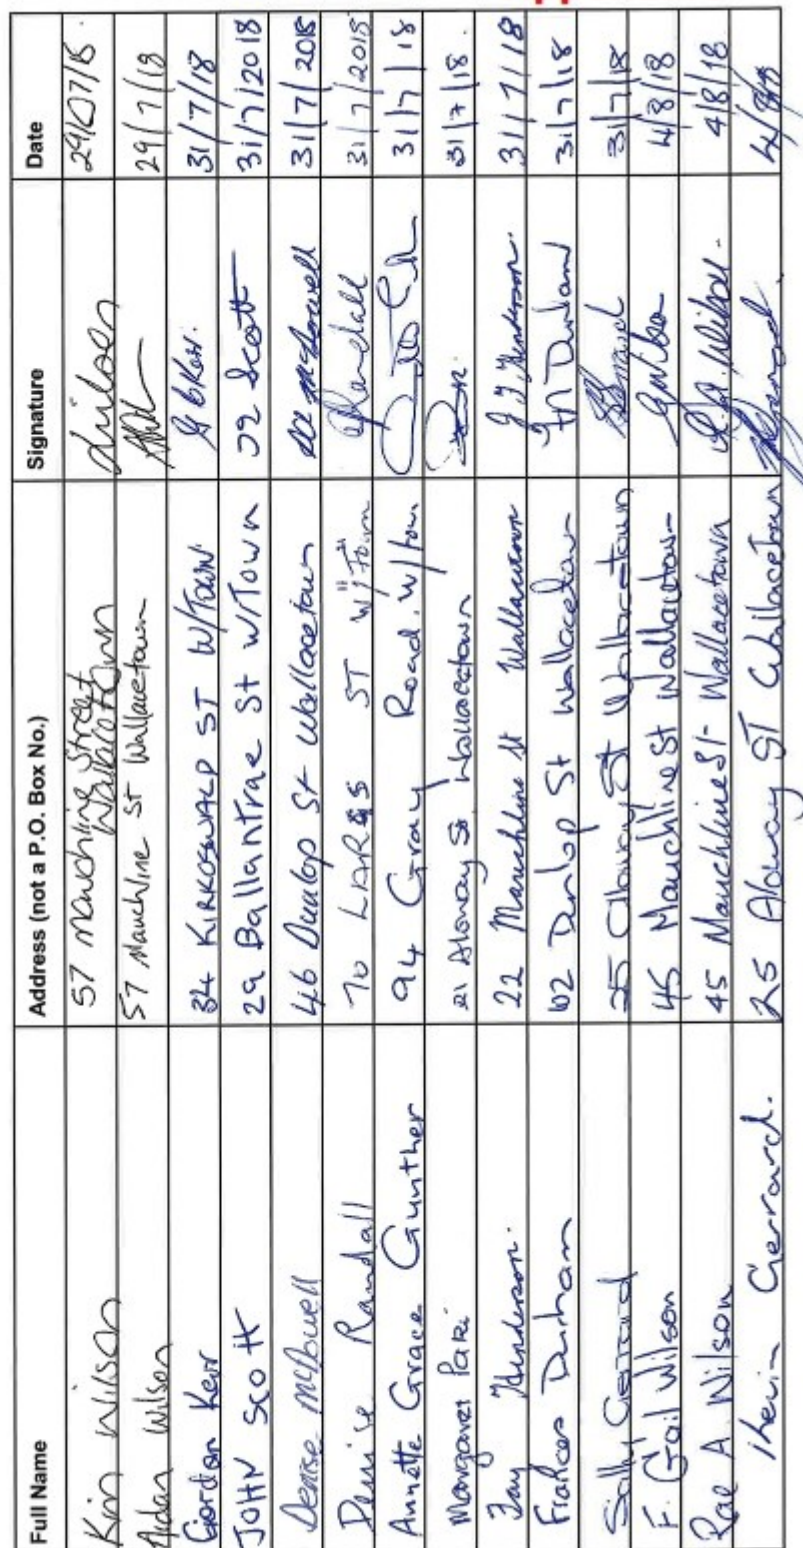 Full Name Address (not a P.O. Box No.) Signature Date
Kim Wilson 57 Mauchline Street Wallacetown Wilson 29/07/18.
Aidan Wilson 57 Mauchline St Wallacetown 29/7/18
Gordon Kerr 34 KIRKOSWALD ST W/TOWN. G Kerr. 31/7/18
JOHN SCOTT 29 Ballantrae St W/Town J2 Scott 31/7/2018
Denise McDowell 46 Dunlop St Wallacetown McDowell 31/7/2018
Denise Randall 70 LARGS ST W/Town Randall 31/7/2018
Annette Grace Gunther 94 Gray Road. W/town 31/7/18
Margaret Paki 21 Alloway St Wallacetown 31/7/18.
Jay Henderson. 22 Mauchline St Wallacetown J J Henderson. 31/7/18
Frances Durham 62 Dunlop St Wallacetown F M Durham 31/7/18
Sally Gerrard 25 Alloway St Wallacetown 31/7/18
F. Gail Wilson 45 Mauchline St Wallacetown G Wilson 4/8/18
Rae A. Wilson 45 Mauchline St Wallacetown R. A. Wilson. 4/8/18
Kevin Gerrard. 25 Aloway ST Wallacetown